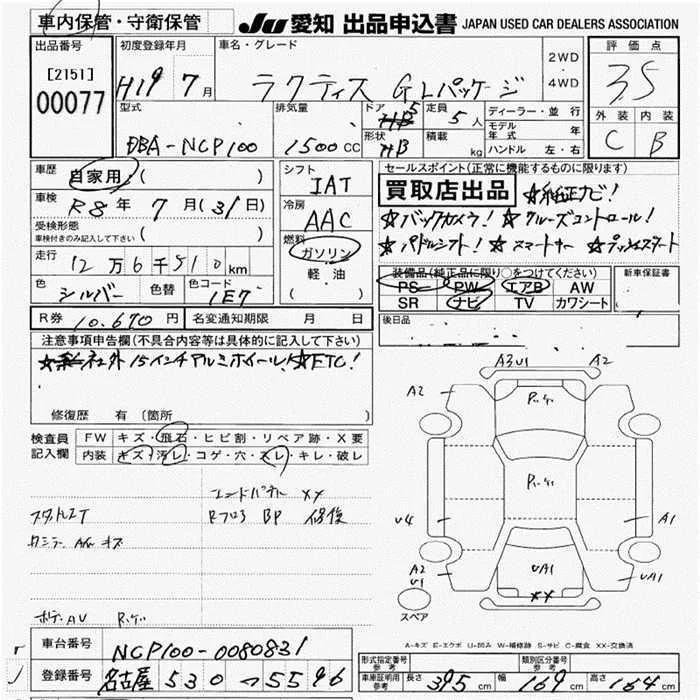 車内保管・守衛保管
JU 愛知 出品申込書 JAPAN USED CAR DEALERS ASSOCIATION
出品番号
[2151]
00077
初度登録年月
H19 7月
車名・グレード
ラクティス GLパッケージ
2WD
4WD
評価点
3.5
外装 内装
C B
型式
DBA-NCP100
排気量
1500cc
ドア 5
形状 HB
定員 5人
積載 kg
ディーラー・並行
モデル年式 年
ハンドル 左・右
車歴 自家用 ( )
車検 R8年 7月(31日)
受検形態
車検付きのみ記入して下さい ( )
走行 12万6千510km
色 シルバー 色替 色コード 1E7
シフト
IAT
冷房
AAC
燃料
ガソリン
軽油
( )
セールスポイント(正常に機能するものに限ります)
買取店出品 ☆純正ナビ!
☆バックカメラ! ☆クルーズコントロール!
☆パドルシフト! ☆スマートキー ☆プッシュスタート
装備品(純正品に限り○をつけてください)
PS PW エアB AW
SR ナビ TV カワシート
新車保証書
後日品
R券 10,670円 名変通知期限 月 日
注意事項申告欄(不具合内容等は具体的に記入して下さい)
社外15インチアルミホイール! ☆ETC!
修復歴 有 (箇所
検査員記入欄
FW キズ・飛石・ヒビ割・リペア跡・X要
内装 キズ・汚レ・コゲ・穴・スレ・キレ・破レ
エンドパネル XX
Rフロア BP 修復
A3U1 A2
A2
U4 A1
UA1
A2
U1
UA1
XX
スペア
A-キズ E-エクボ U-凹み W-補修跡 S-サビ C-腐食 XX-交換済
車台番号 NCP100-0080831
登録番号 名古屋 530 つ 5596
形式指定番号 参考
類別区分番号 参考
車庫証明用 参考 長さ 395cm 幅 169cm 高さ 164cm